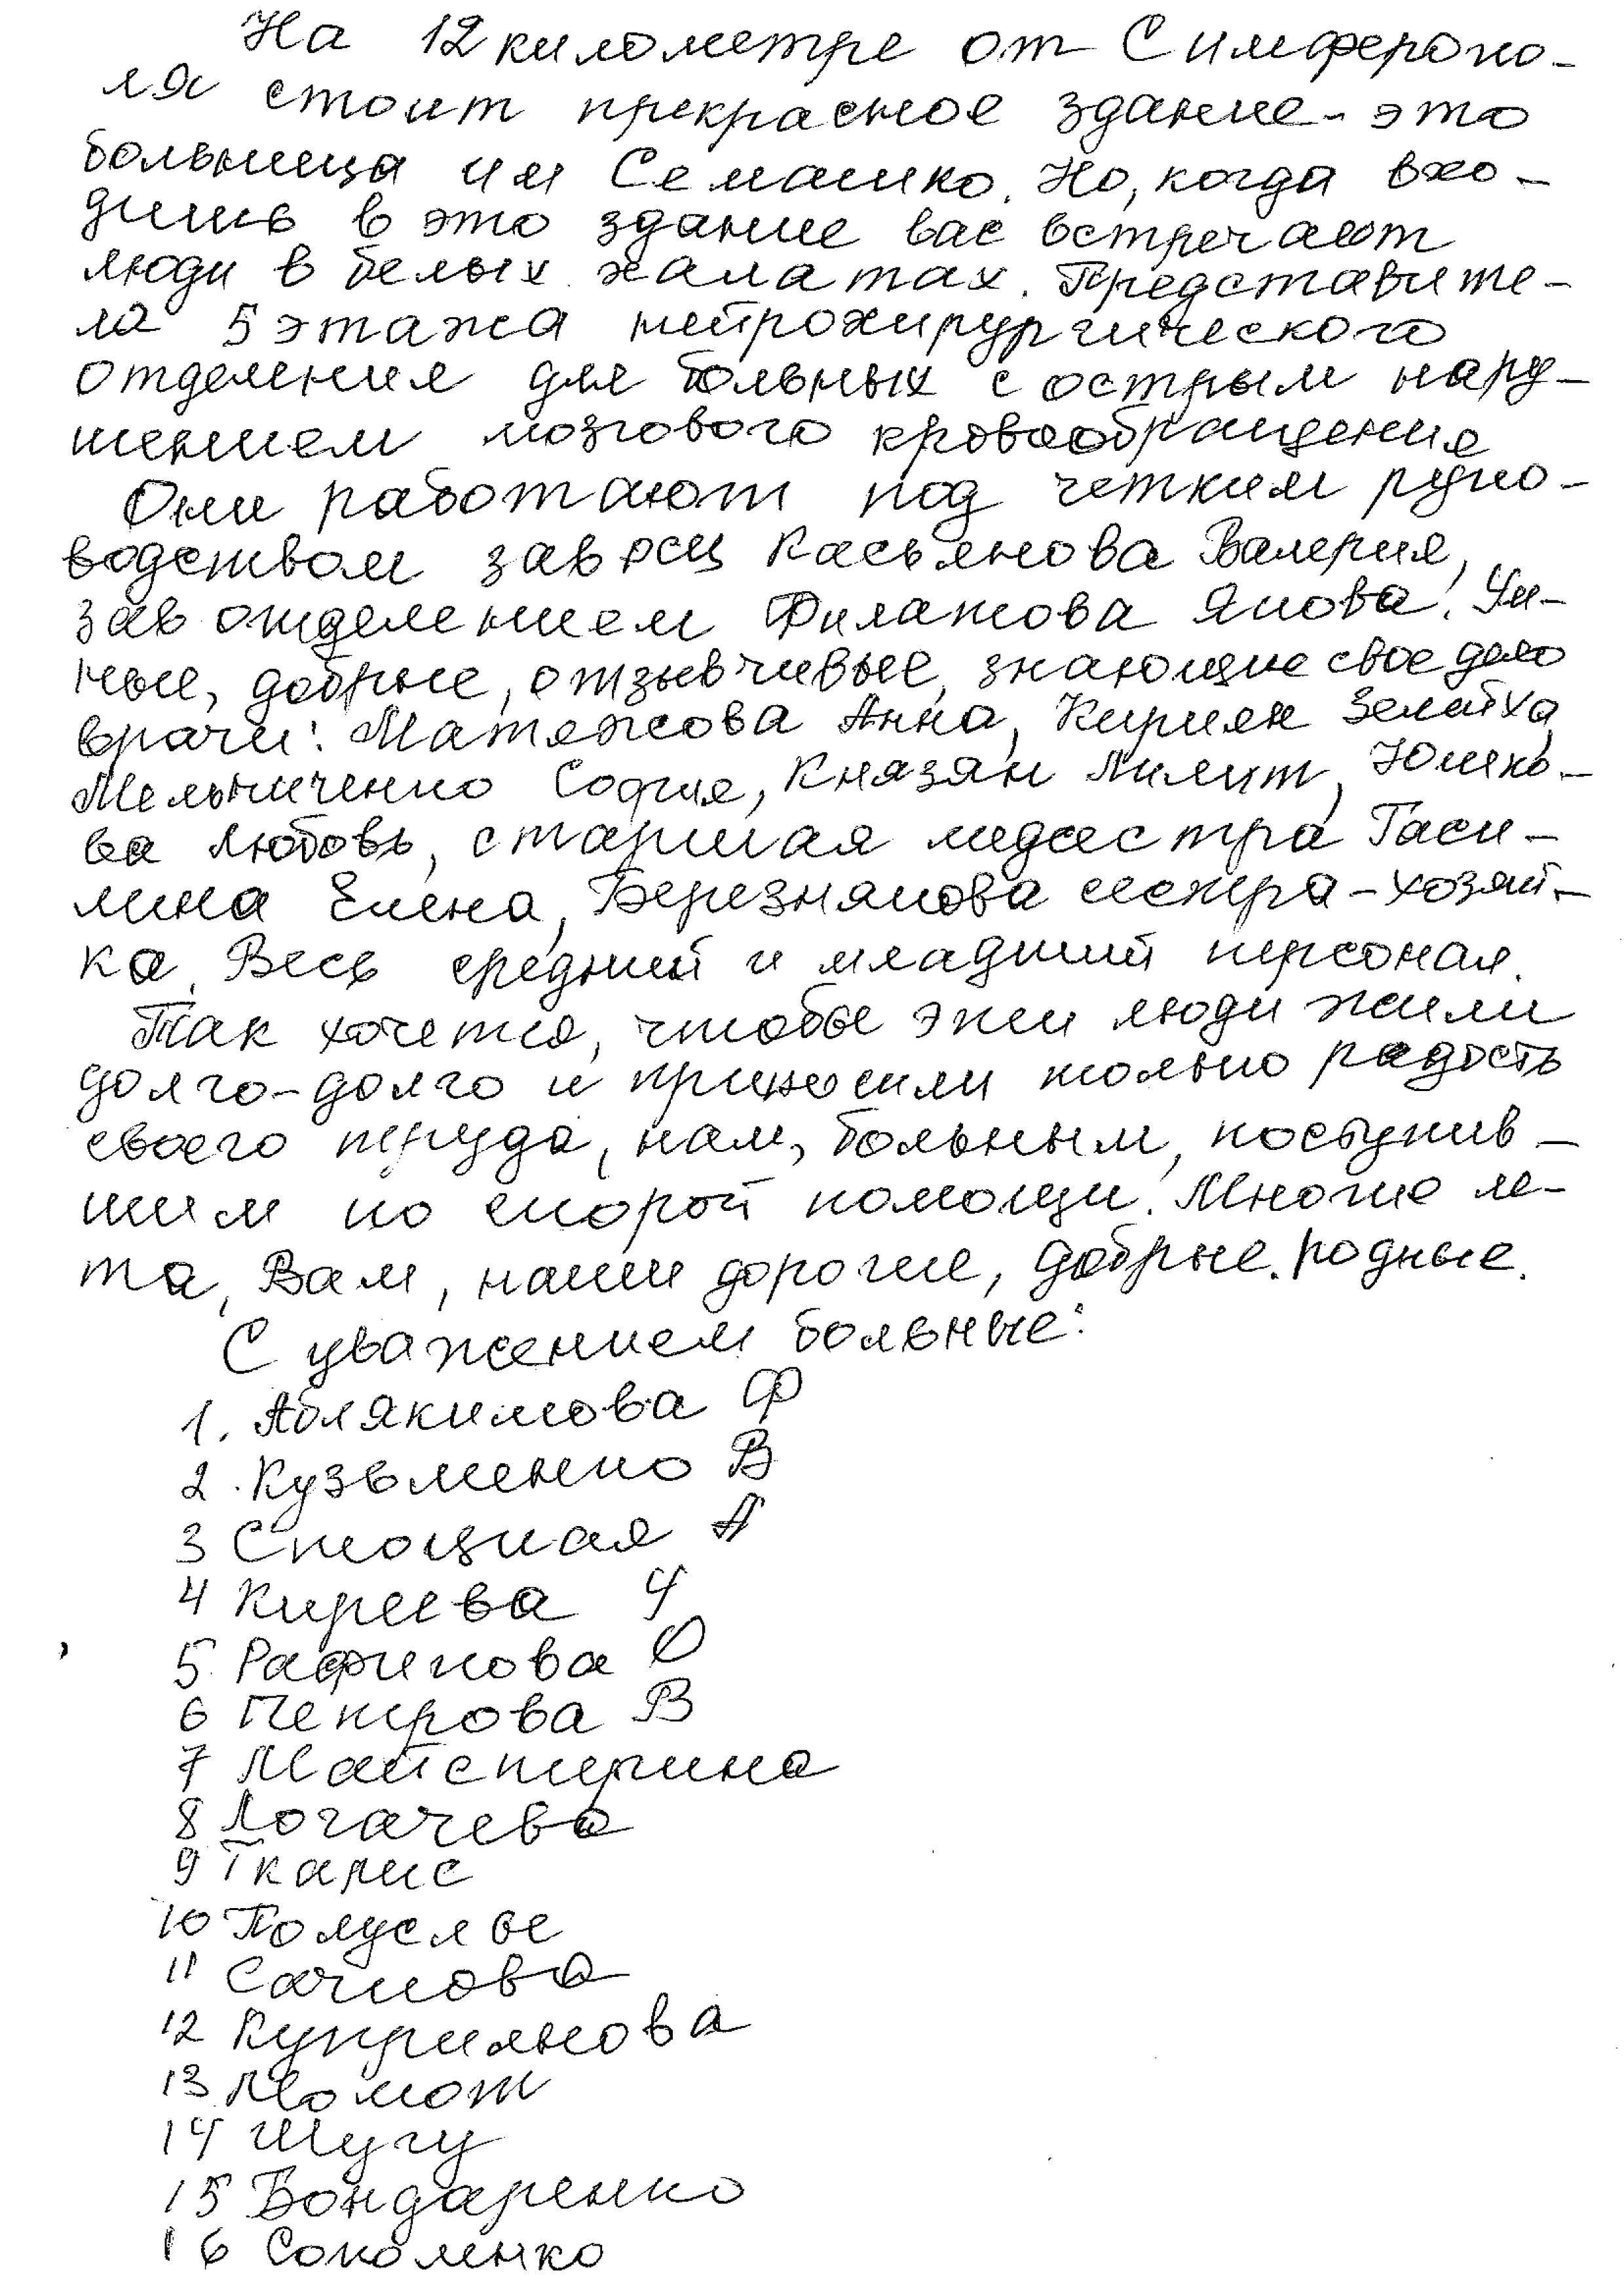 На 12 километре от Симферопо-
ля стоит прекрасное здание - это
больница им Семашко. Но, когда вхо-
дишь в это здание вас встречают
люди в белых халатах. Представите-
ли 5 этажа нейрохирургического
отделения для больных с острым нару-
шением мозгового кровообращения
Они работают под четким руко-
водством зав рсц Касьянова Валерия,
зав отделением Филатова Якова. Ум-
ные, добрые, отзывчивые, знающие свое дело
врачи: Матяжова Анна, Кириян Зелейха,
Мельниченко София, Князян Лилит, Юшко-
ва Любовь, старшая медсестра Гаси-
лина Елена, Березнякова сестра-хозяй-
ка. Весь средний и младший персонал.
Так хочется, чтобы эти люди жили
долго-долго и приносили только радость
своего труда, нам, больным, поступив-
шим по скорой помощи. Многие ле-
та, Вам, наши дорогие, добрые. родные.
С уважением больные:
1. Аблякимова Ф
2. Кузьменко В
3 Стоцкая А
4 Киреева
5. Рафикова
6 Петрова В
7 Майстерина
8 Логачева
9
10
11 Сачкова
12 Куприянова
13 Момот
14 Шугу
15 Бондаренко
16 Соколенко